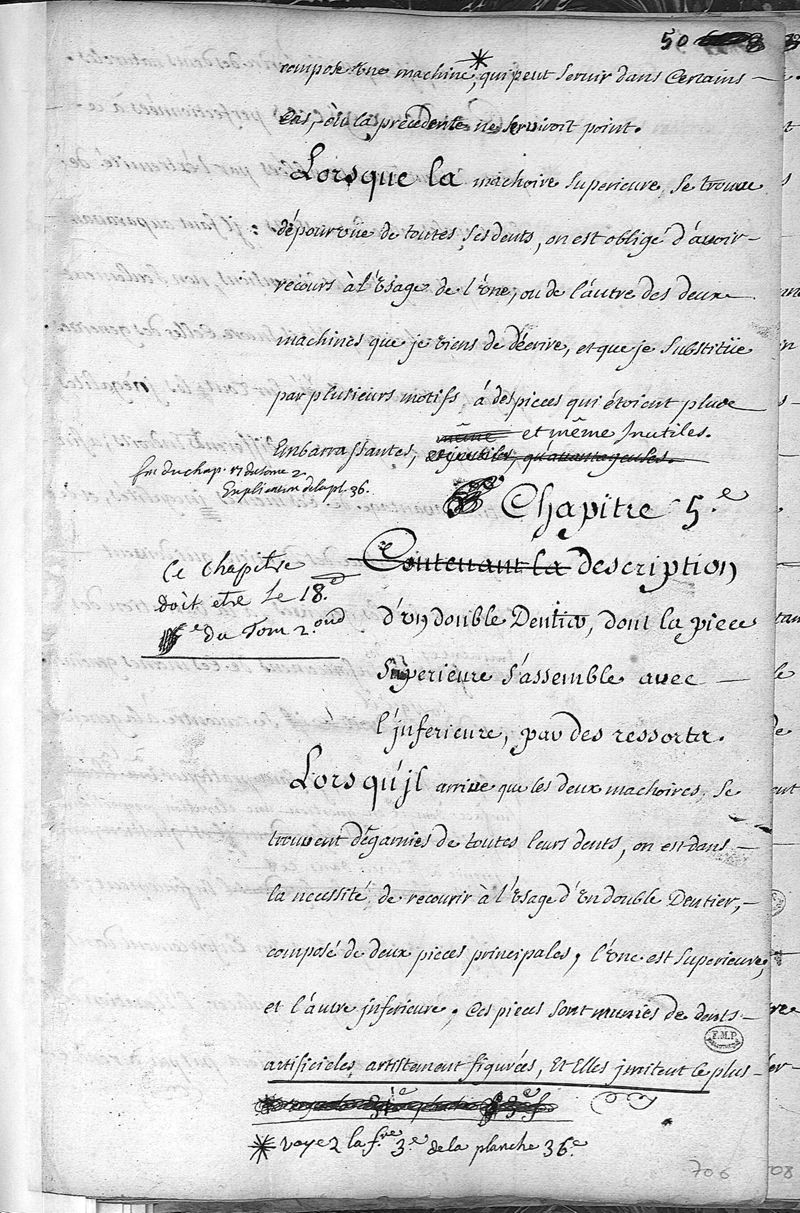 50
compose une machine *, qui peut servir dans certains
cas, où la précédente ne serviroit point.
Lorsque la machoire superieure, se trouve
dépourvüe de toutes ses dents, on est obligé d'avoir
recours à l'usage de l'une, ou de l'autre des deux
machines que je viens de décrire, et que je substitüe
par plusieurs motifs, à des pieces qui étoient plus
même et même Inutiles.
Embarrassantes,
fin du chap. 17 du tome 2
Explication de la pl. 36.
Chapitre 5.e
Ce chapitre
Doit etre Le 18.e
du Tom 2.ond
Contenant la description
d'un double Dentier, dont la piece
superieure s'assemble avec
l'inferieure, par des ressorts.
Lorsqu'jl arrive que les deux machoires, se
trouvent dégarnies de toutes leurs dents, on est dans
la necessité de recourir à l'usage d'un double Dentier,
composé de deux pieces principales, l'une est superieure,
et l'autre jnferieure. Ces pieces sont munies de dents
artificieles, artistement figurées, et Elles jmitent le plus
* voyez la f.re 3.e de la planche 36.e
F.M.P.
706